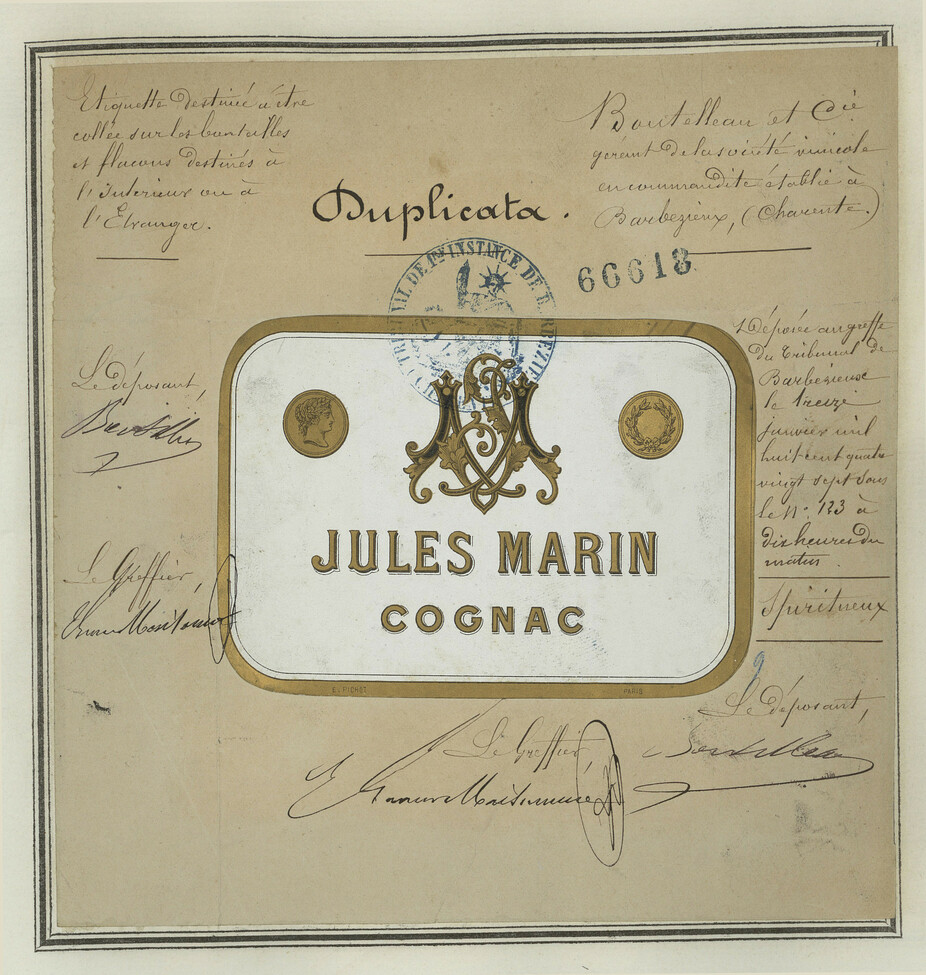 Etiquette destinée à être
collée sur les bouteilles
et flacons destinés à
l'Intérieur ou à
l'Etranger.
Duplicata.
Boutelleau et Cie
gérant de la société vinicole
en commandite établie à
Barbezieux, (Charente.)
TRIBUNAL DE 1re INSTANCE DE BARBEZIEUX
66618
Déposée au greffe
du Tribunal de
Barbezieux
le treize
janvier mil
huit cent quatre
vingt sept sous
le N° 123 à
dix heures du
matin.
Spiritueux
Le déposant,
Boutelleau
Le Greffier,
JULES MARIN
COGNAC
E. PICHOT
PARIS
9
Le déposant,
Boutelleau
Le Greffier,